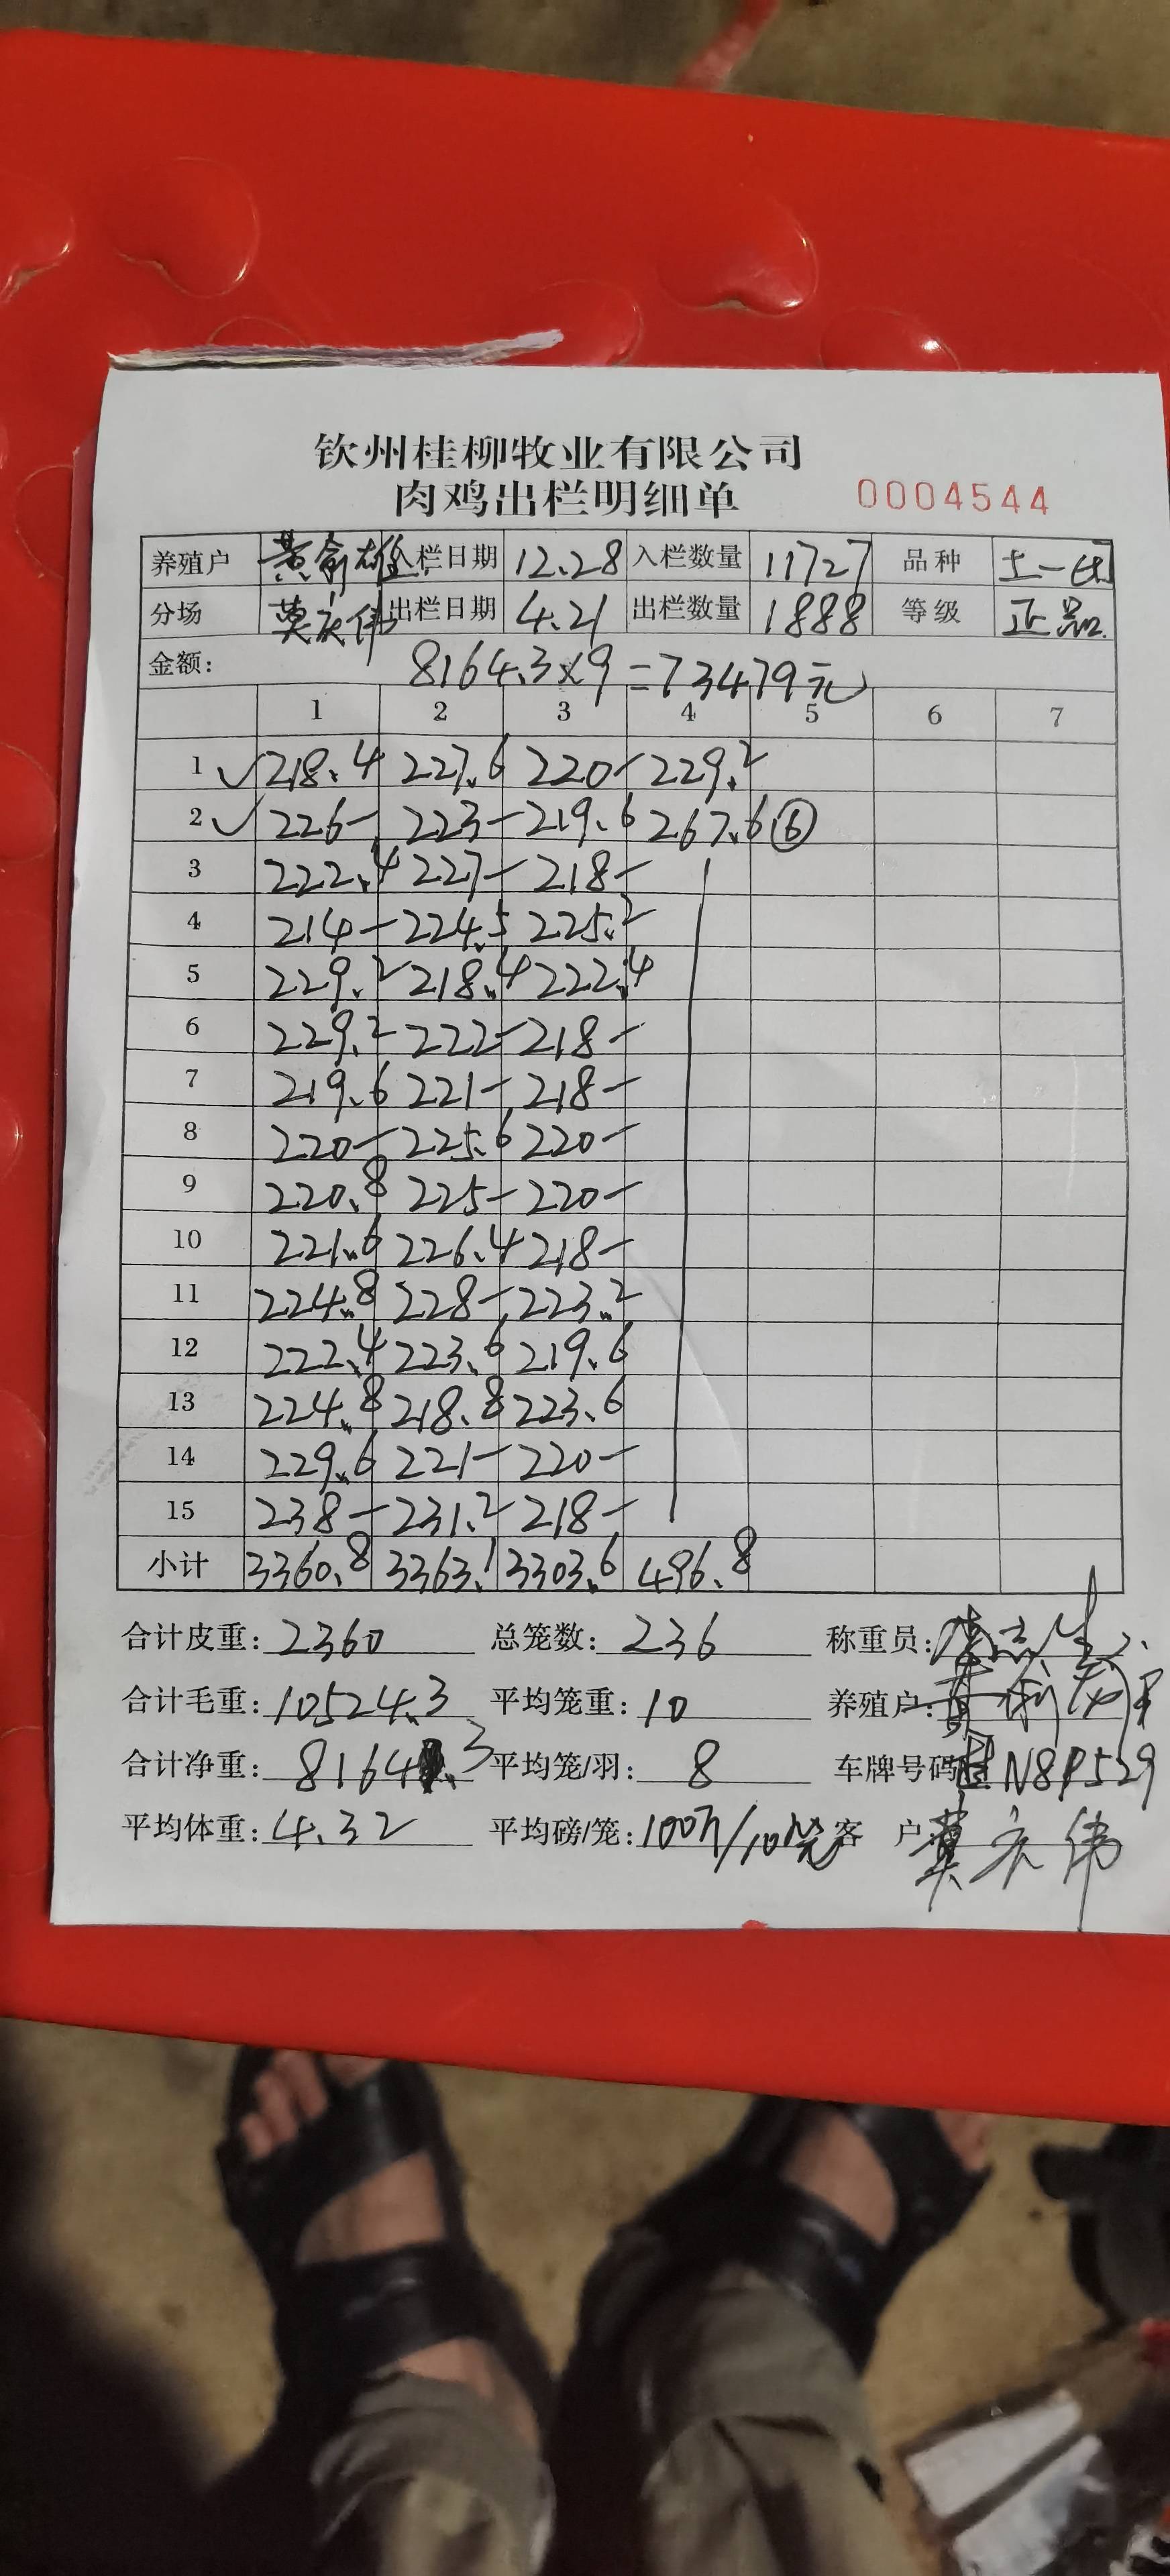 钦州桂柳牧业有限公司
肉鸡出栏明细单 0004544
养殖户 黄俞雄 入栏日期 12.28 入栏数量 11727 品种 土一
分场 莫庆伟 出栏日期 4.21 出栏数量 1888 等级 正品
金额: 8164.3×9=73479元
1 2 3 4 5 6 7
1 ✓ 218.4 227.6 220- 229.2
2 ✓ 226- 223- 219.6 267.6 ⑥
3 222.4 227- 218-
4 214- 224.5 225.2
5 229.2 218.4 222.4
6 229.2 222- 218-
7 219.6 221- 218-
8 220- 225.6 220-
9 220.8 225- 220-
10 221.6 226.4 218-
11 224.8 228- 223.2
12 222.4 223.6 219.6
13 224.8 218.8 223.6
14 229.6 221- 220-
15 238- 231.2 218-
小计 3360.8 3363.1 3303.6 496.8
合计皮重: 2360 总笼数: 236 称重员:
合计毛重: 10524.3 平均笼重: 10 养殖户:
合计净重: 8164.3 平均笼/羽: 8 车牌号码 桂N8P529
平均体重: 4.32 平均磅/笼: 客 户 莫庆伟